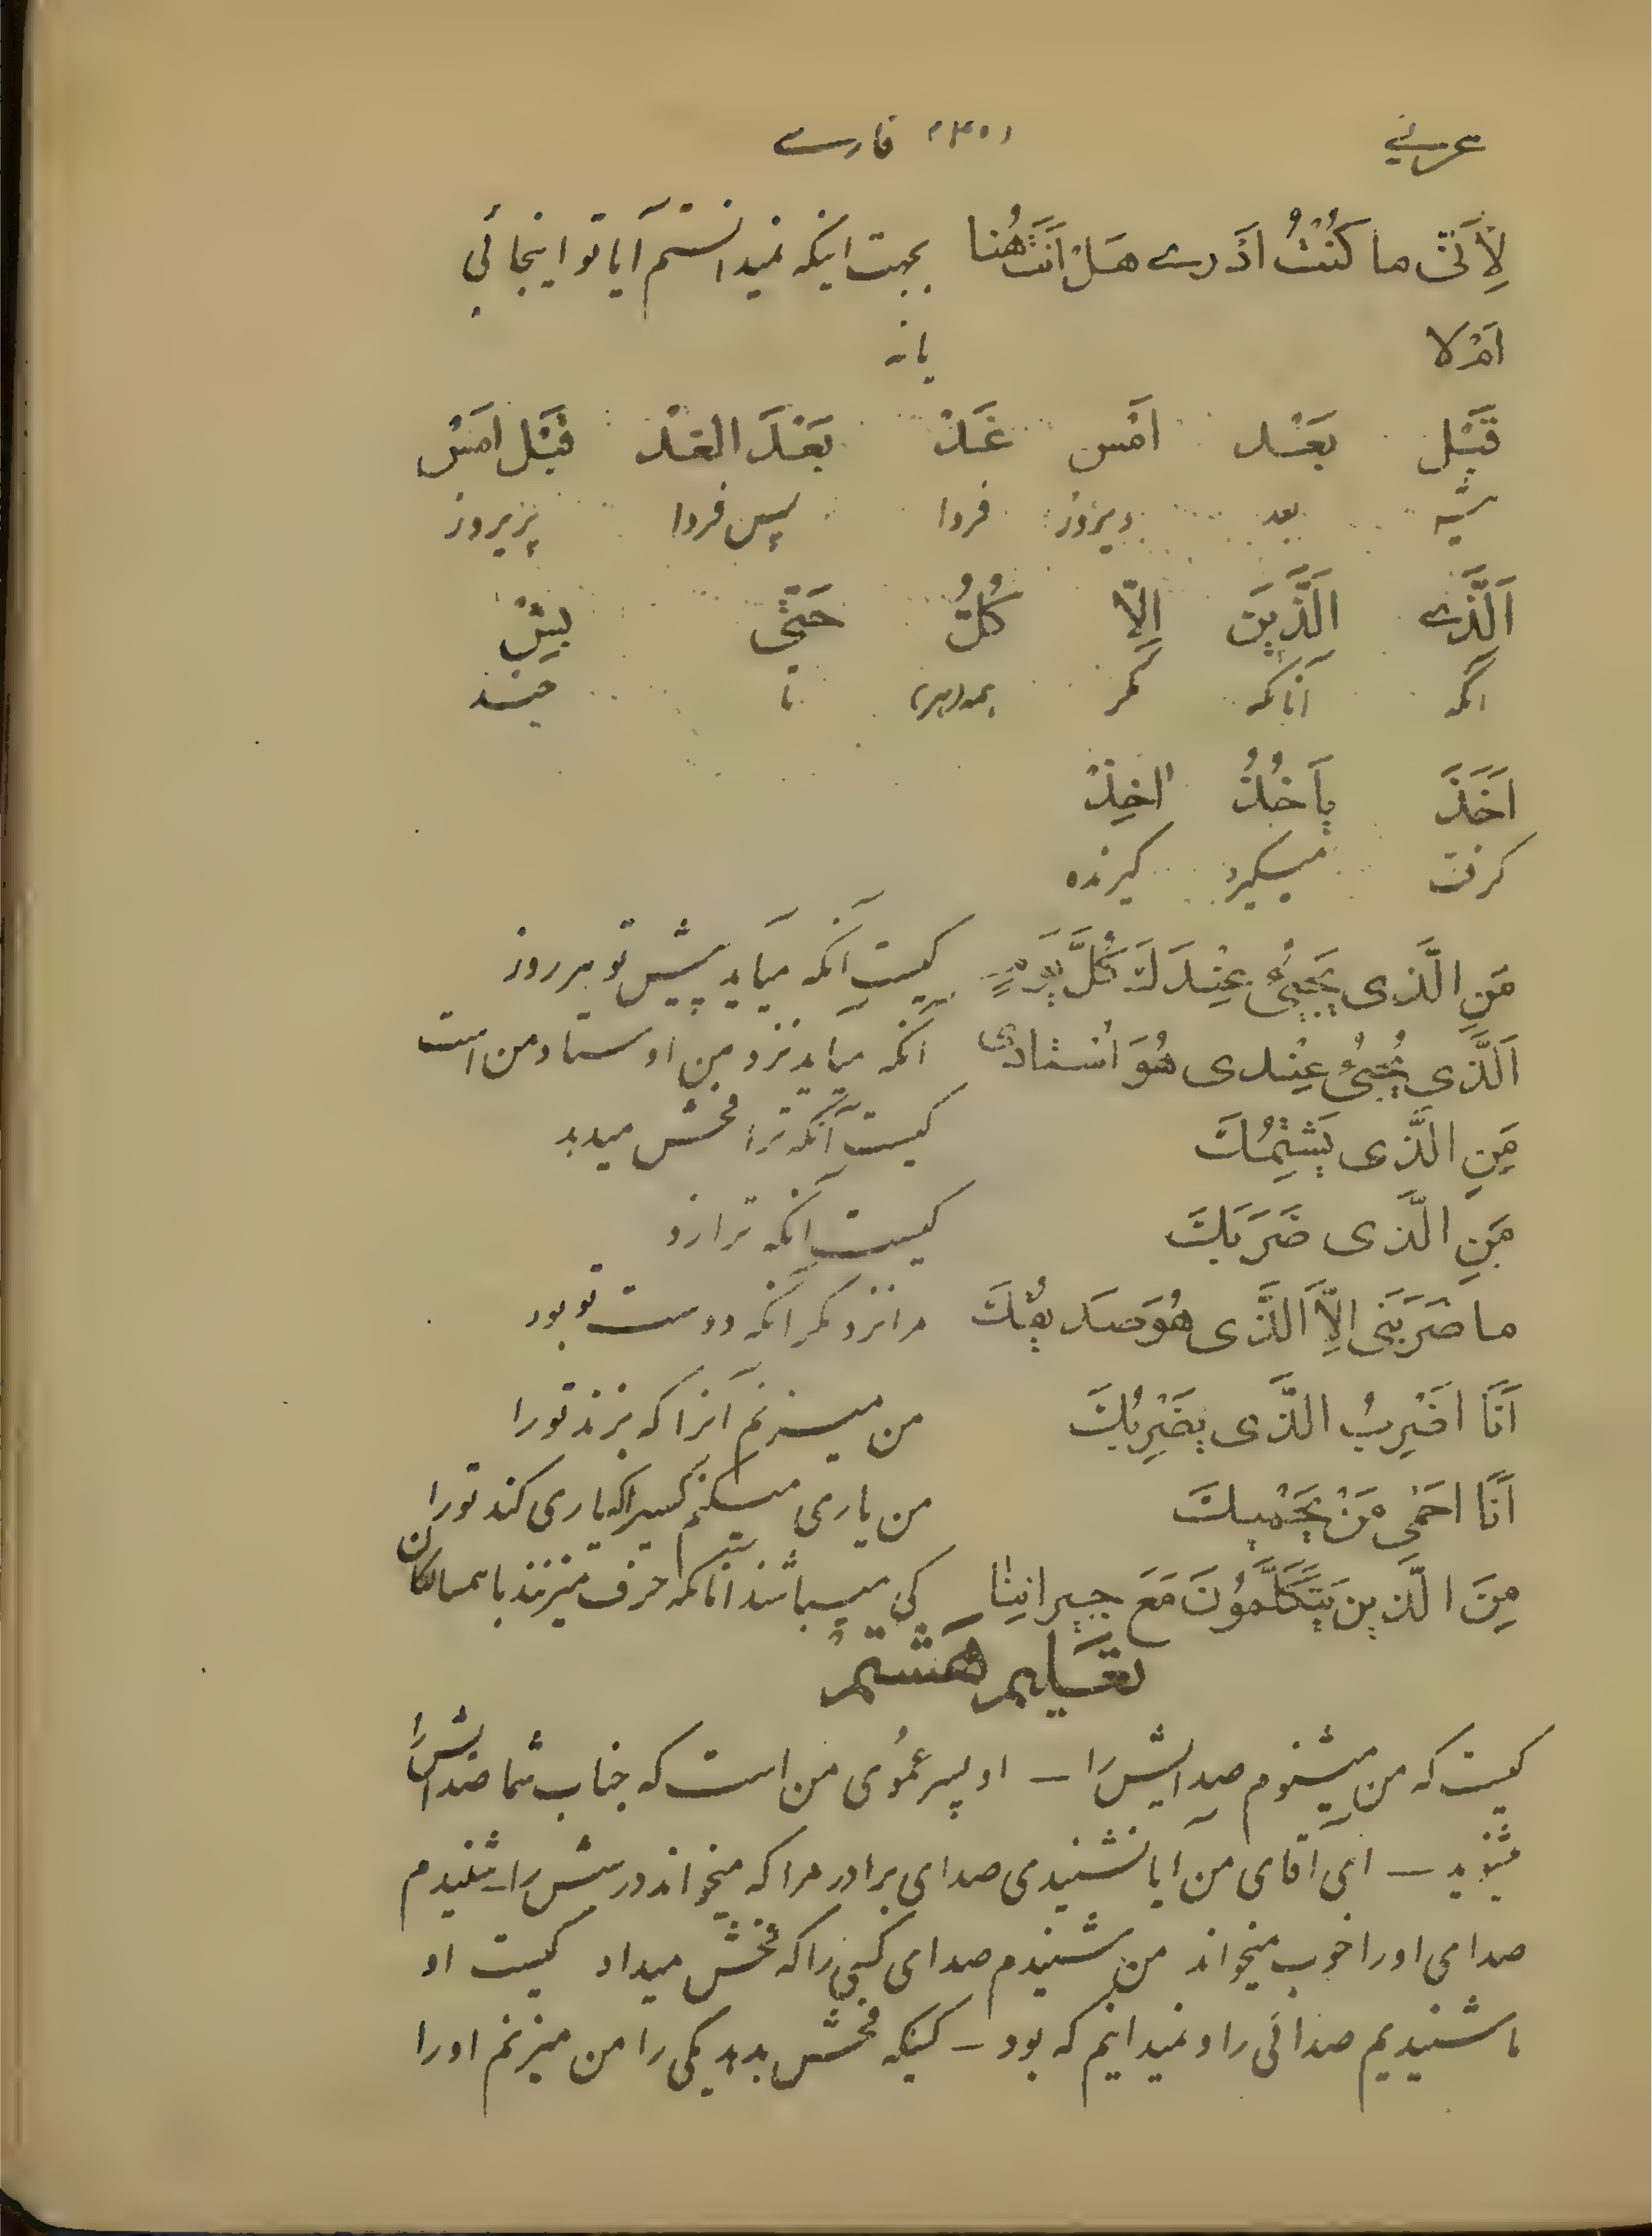 عربی فارسے
لِاَنّی ما كُنْتُ اَدْرے هَلْ اَنْتَ هُنا بجهت اینکه نمیدانستم آیا تو اینجائی
اَمْ لا یا نه
قَبْل بَعْد اَمْس غَدْ بَعْدَ الغَد قَبْل اَمْس
بعد دیروز فردا پس فردا پریروز
اَلَّذے اَلَّذینَ اِلّا كُلُّ حَتّی
آنکه آنانکه مگر همه (هر) تا
اَخَذَ یَأخُذُ اٰخِذْ
گرفت میگیرد گیرنده
مَنِ الَّذی یَجیئُ عِنْدَكَ كُلَّ یَوْمٍ کیست آنکه میآید پیش تو هر روز
اَلَّذی یَجیئُ عِنْدی هُوَ اُسْتادی آنکه میآید نزد من اوستاد من است
مَنِ الَّذی یَشْتِمُكَ کیست آنکه ترا فحش میدهد
مَنِ الَّذی ضَرَبَكَ کیست آنکه ترا زد
ما ضَرَبَنی اِلّا الَّذی هُوَ صَدیقُكَ مرا نزد مگر آنکه دوست تو بود
اَنَا اَضْرِبُ الَّذی یَضْرِبُكَ من میزنم آنرا که بزند تورا
اَنَا اَحْمی مَنْ یَحْمیكَ من یاری میکنم کسیرا که یاری کند تورا
مَنِ الَّذینَ یَتَكَلَّمُونَ مَعَ جیرانِنا کی میباشند آنانکه حرف میزنند با همسایگان
تَعْلیم هَشْتُم
کیست که من میشنوم صدایش را – او پسر عموی من است که جناب شما صدایش را
میشنوید – ای آقای من آیا نشنیدی صدای برادر مرا که میخواند درسش را – شنیدم
صدای اورا خوب میخواند من شنیدم صدای کسی را که فحش میداد کیست او
ما شنیدیم صدائی را و نمیدانیم که بود – کسیکه فحش بدهد یکی را من میزنم اورا